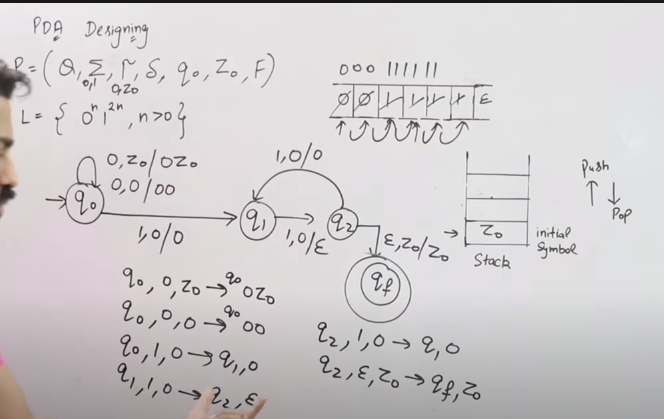 PDA Designing
P = (Q, Σ, Γ, δ, q₀, Z₀, F)
0,1 0,Z₀
L = { 0ⁿ1²ⁿ, n>0 }
000 111111
0 0 1 1 1 1 ε
0,Z₀/0Z₀
0,0/00
q₀
1,0/0
q₁
1,0/0
1,0/ε
q₂
ε,Z₀/Z₀
qf
Z₀
Stack
initial
Symbol
Push
Pop
q₀, 0, Z₀ → q₀ 0Z₀
q₀, 0, 0 → q₀ 00
q₀, 1, 0 → q₁, 0
q₁, 1, 0 → q₂, ε
q₂, 1, 0 → q₁ 0
q₂, ε, Z₀ → qf, Z₀